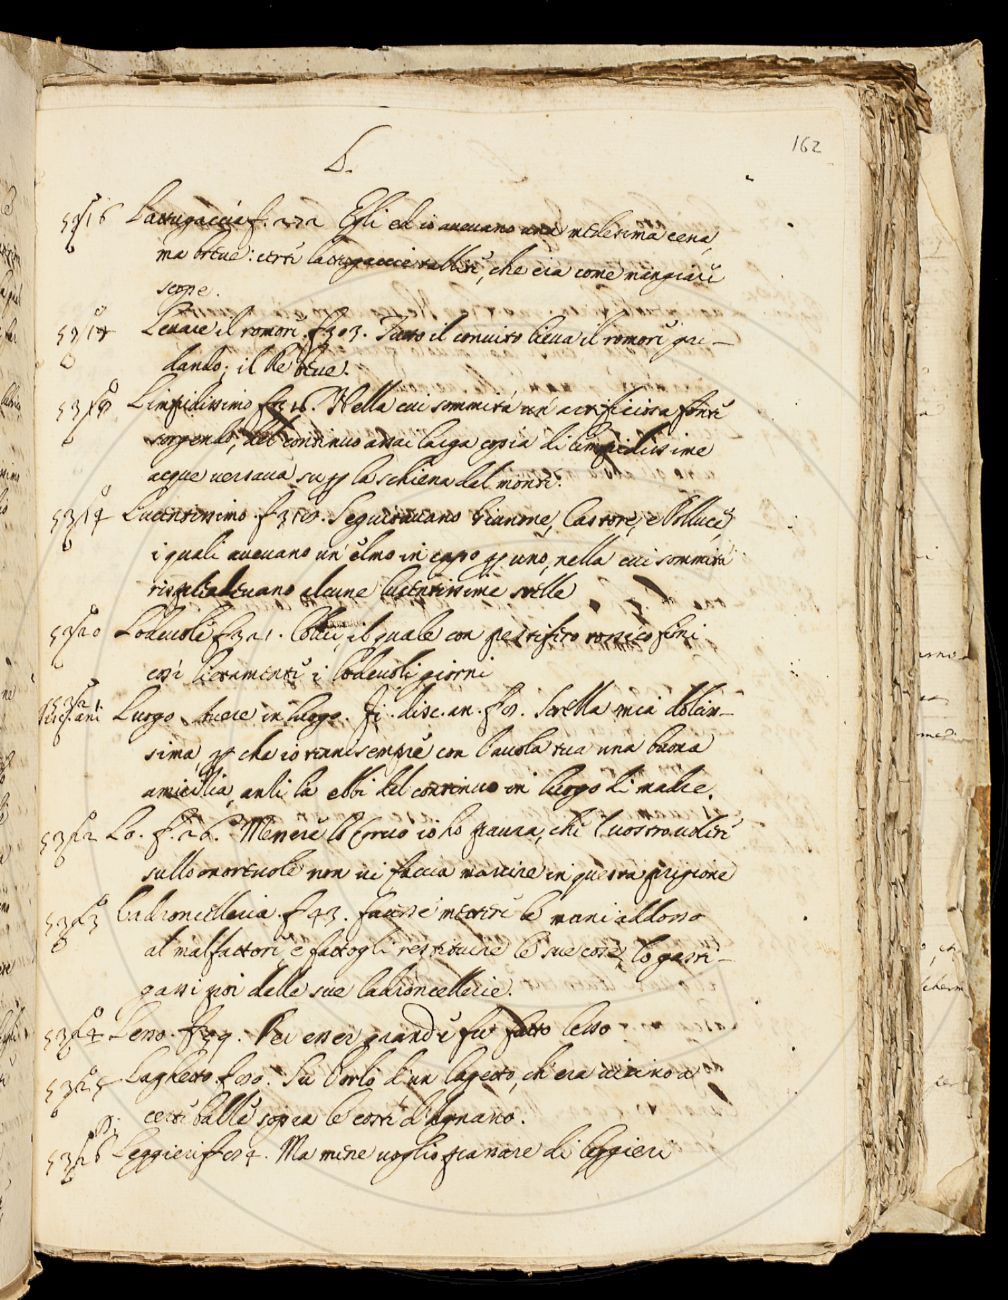 162
L.
5316 Lattugaccia f. 272 Egli ed io avevamo una medesima cena,
ma breve: certe lattugaccie tallite, che era come mangiare
scope.
5317 Levare il romore. f 303. Tutto il convito lieva il romore gri-
dando; il Re beve.
5318 Limpidissimo f 316. Nella cui sommità un' artificiosa fonte
sorgendo, del continuo assai larga copia di limpidissime
acque versava su p la schiena del monte.
5319 Lucentissimo. f 318. Seguitavano Giunone, Castore, e Polluce
i quali avevano un' elmo in capo p uno, nella cui sommità
alcune lucentissime stelle
5320 Lodevole f 321. Colui, il quale con pestifero tossico finì
così lietamente i lodevoli giorni
5321. Luogo in luogo. Fi. disc. an. f 8. Sorella mia dolcis-
sima, p che io tenni sempre con l'avola tua una buona
amicizia, anzi la ebbi del continuo in luogo di madre.
5322 Lo. f. 26. Messere lo Corvo io ho paura, che l vostro udire
sullo onorevole non vi faccia marcire in questa prigione
5323 Ladroncelleria. f 43. Facesse mettere le mani addosso
al malfattore, e fattogli restituire le sue cose, lo gasti-
gassi poi delle sue ladroncellerie.
5324 Lesso. f 49. Per esser grande fu fatto lesso
5325 Laghetto f 50. Su l'orlo d'un lagetto, ch'era vicino a
certe balle sopra le coste d'Agnano.
5326 Leggieri f 54. Ma me ne voglio passare di leggieri